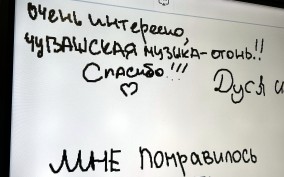 Очень интересно,
ЧУВАШСКАЯ МУЗЫКА-ОГОНЬ!!
Спасибо!!!
♡
Дуся и
МНЕ понравилось